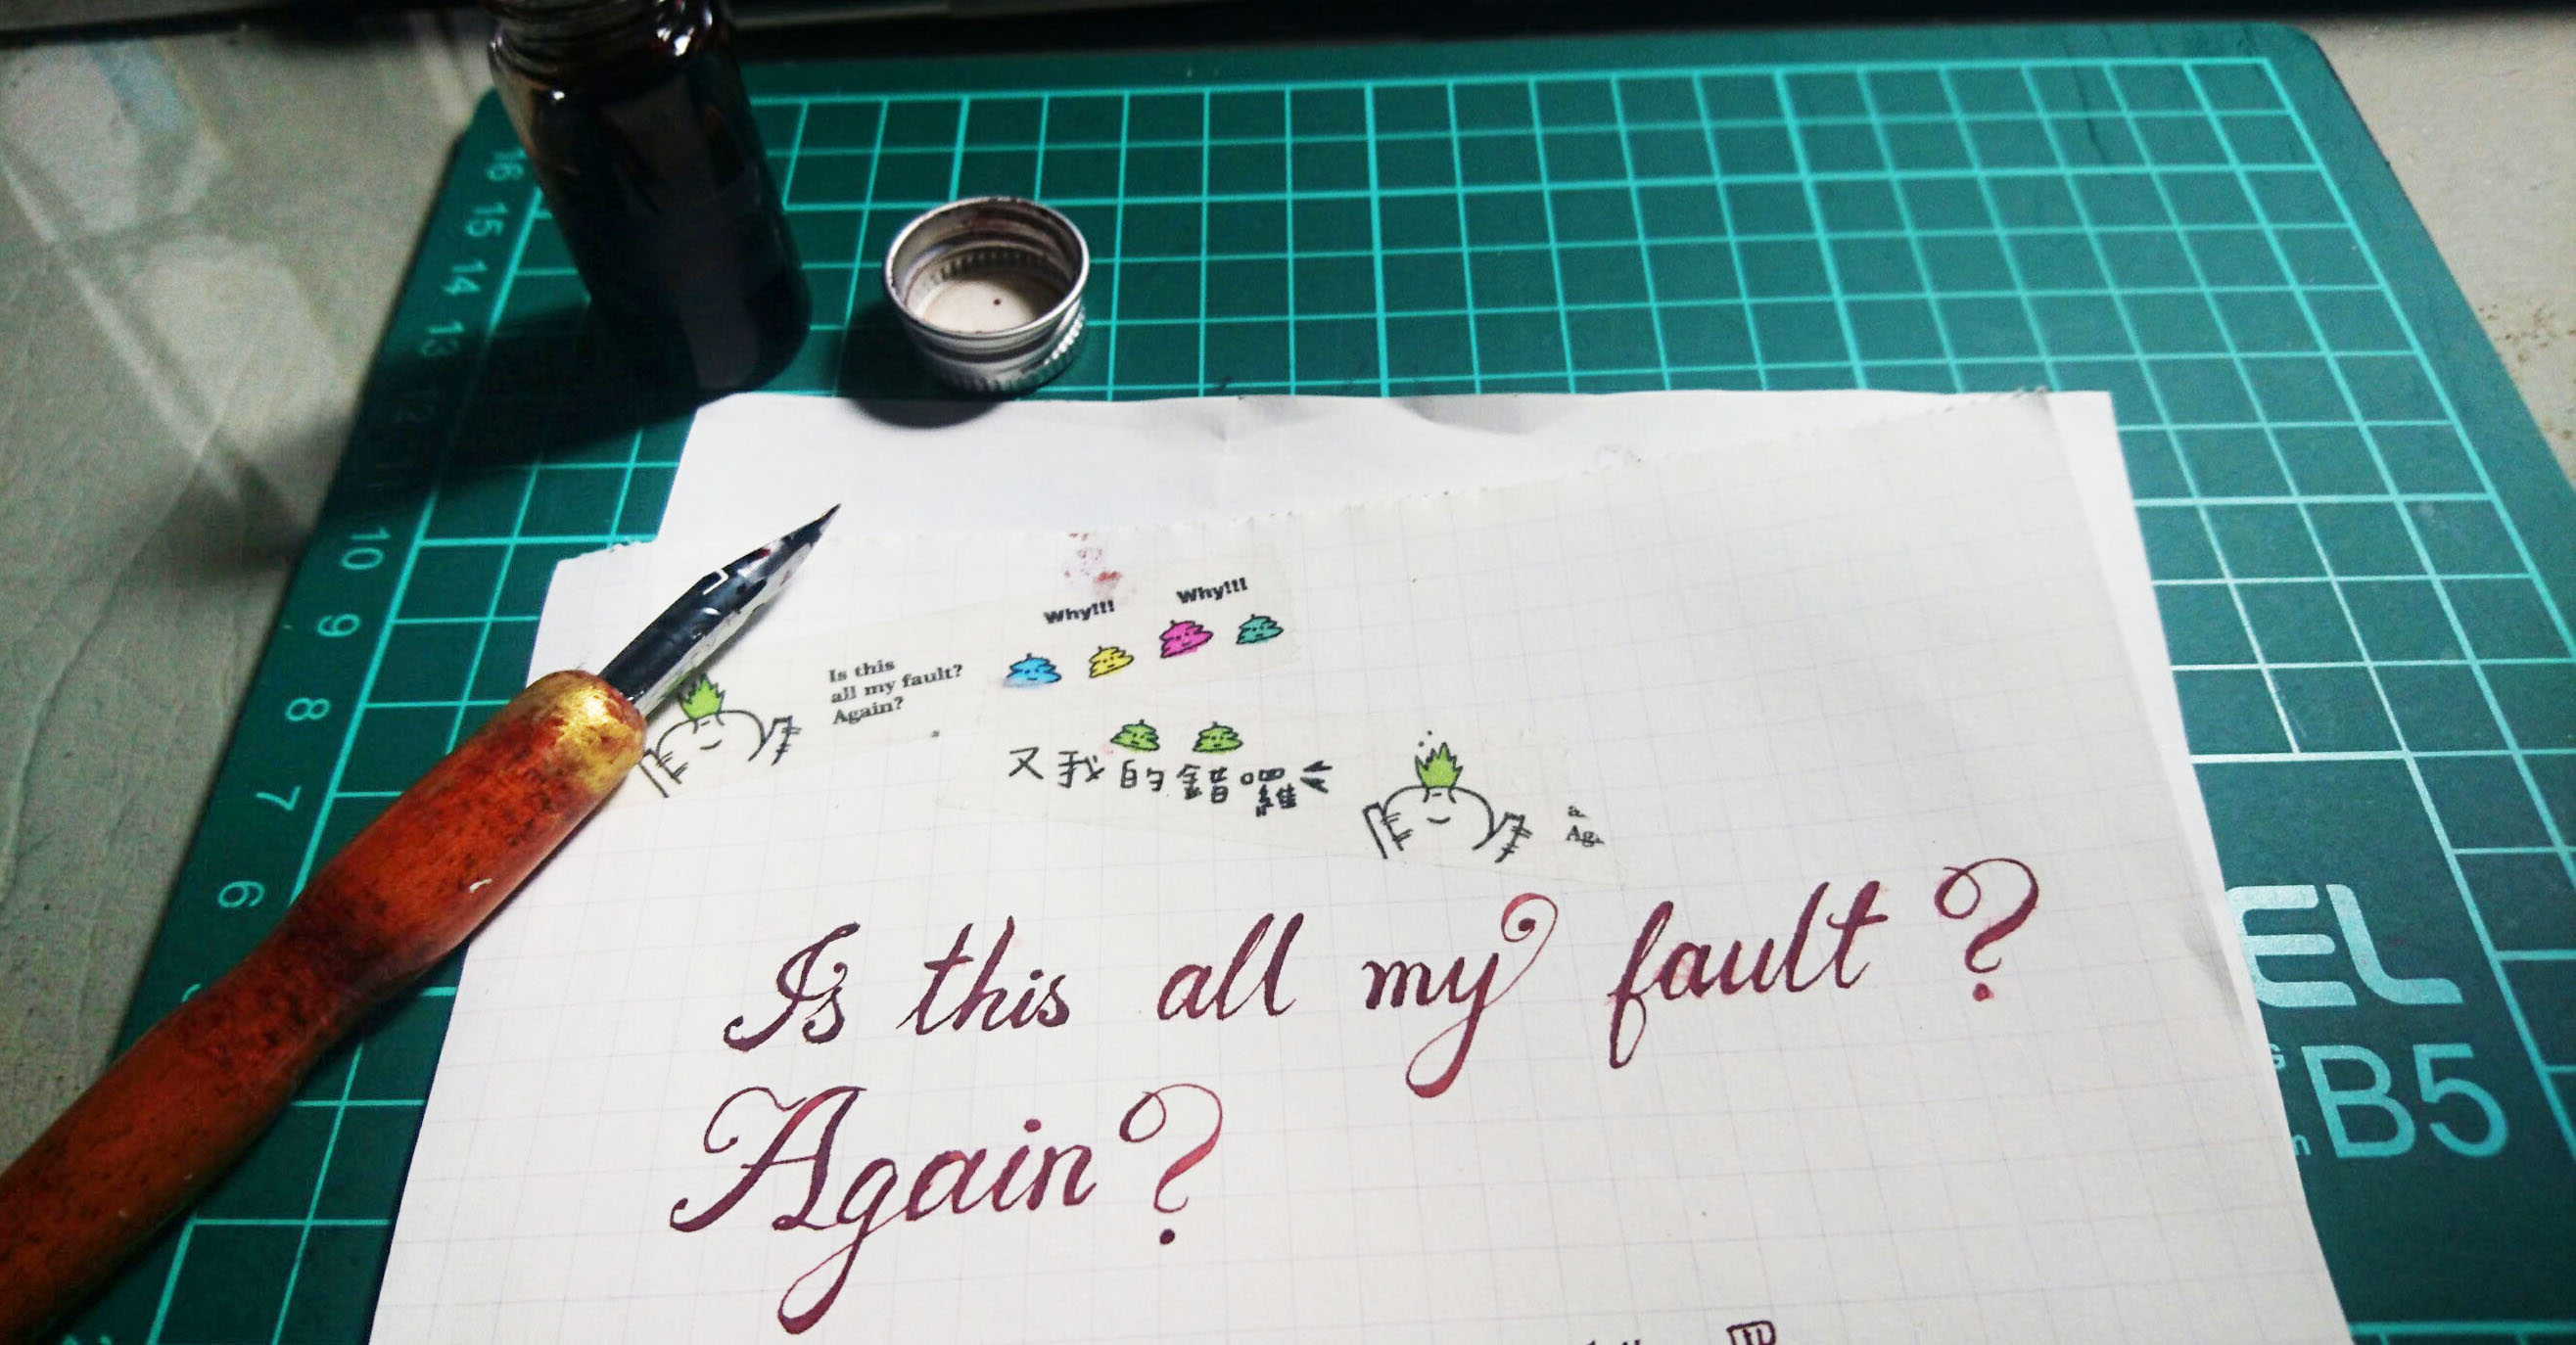 16
15
14
13
12
11
10
9
8
7
6
Why!!! Why!!!
Is this
all my fault?
Again?
又我的錯囉
Is this all my fault?
Again?
EL
B5